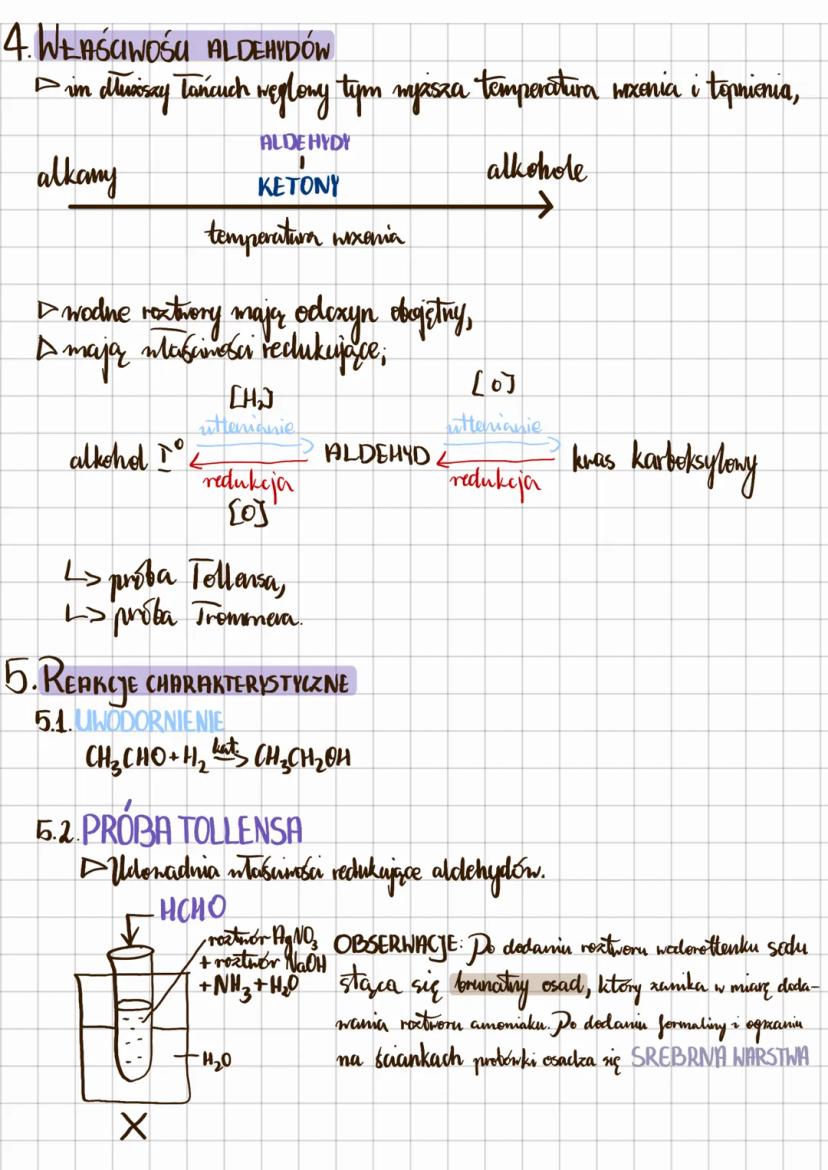 4. WŁAŚCIWOŚCI ALDEHYDÓW
▷ im dłuższy łańcuch węglowy tym wyższa temperatura wrzenia i topnienia,
ALDEHYDY
alkany
alkohole
KETONY
temperatura wrzenia
▷ wodne roztwory mają odczyn obojętny,
▷ mają właściwości redukujące;
[H₂] [O]
utlenianie utlenianie
alkohol I° ALDEHYD kwas karboksylowy
redukcja redukcja
[O]
↳ próba Tollensa,
↳ próba Trommera.
5. REAKCJE CHARAKTERYSTYCZNE
5.1. UWODORNIENIE
CH₃CHO + H₂ kat.→ CH₃CH₂OH
5.2. PRÓBA TOLLENSA
▷ Udowadnia właściwości redukujące aldehydów.
HCHO
roztwór AgNO₃
+ roztwór NaOH
+ NH₃ + H₂O
H₂O
X
OBSERWACJE: Po dodaniu roztworu wodorotlenku sodu
strąca się brunatny osad, który zanika w miarę doda-
wania roztworu amoniaku. Po dodaniu formaliny i ogrzaniu
na ściankach probówki osadza się SREBRNA WARSTWA